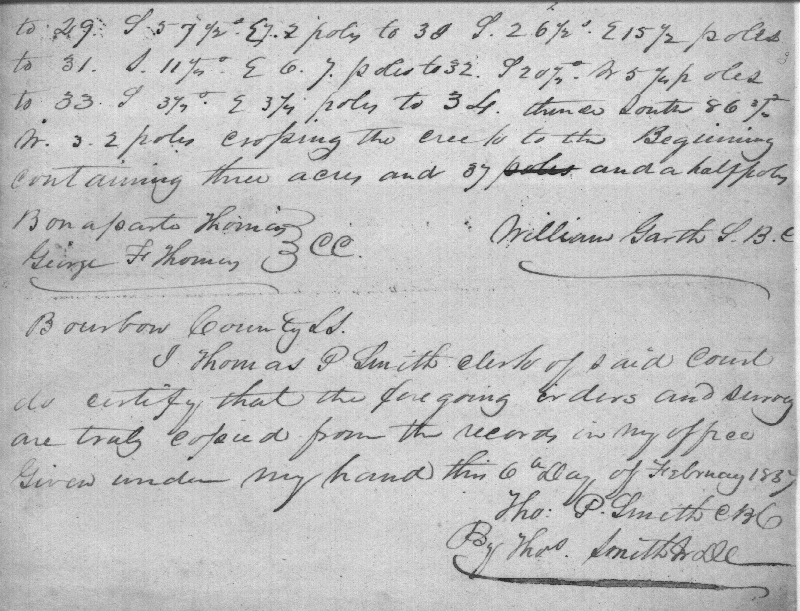 to 29. S 57 1/2° E 7.2 poles to 30 S. 26 1/2°. E 15 1/2 poles
to 31. S. 11 1/2° E 6.7. poles to 32. S 20 1/2°. W 5 1/4 poles
to 33 S 3 1/2°. E 3 1/4 poles to 34. thence South 86 3/4
W. 3.2 poles crossing the creek to the Beginning
containing three acres and 37 poles and a half poles
Bonaparte Thomas
George F Thomas } CC.
William Garth S. B. C
Bourbon County Ss.
I Thomas P Smith clerk of said Court
do certify that the foregoing orders and survey
are truly copied from the records in my office
Given under my hand this 6th Day of February 1837
Tho: P. Smith CBC
By Thos. Smith Jr DC